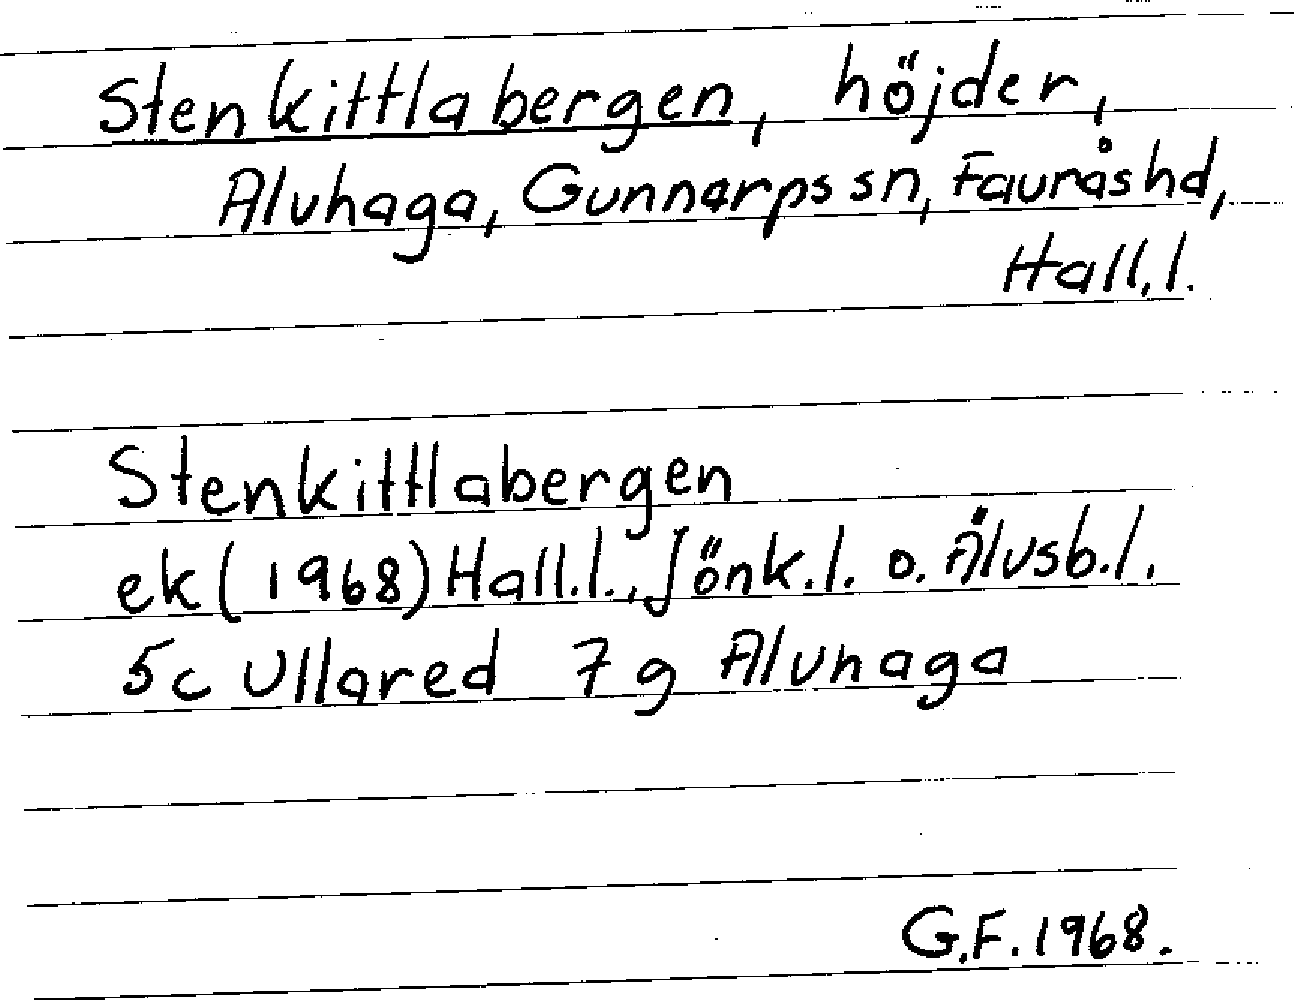 Stenkittlabergen, höjder,
Alvhaga, Gunnarps sn, Fauråshd,
Hall.l.
Stenkittlabergen
ek (1968) Hall.l., Jönk.l. o. Älvsb.l.
5c Ullared 7g Alvhaga
G.F. 1968.